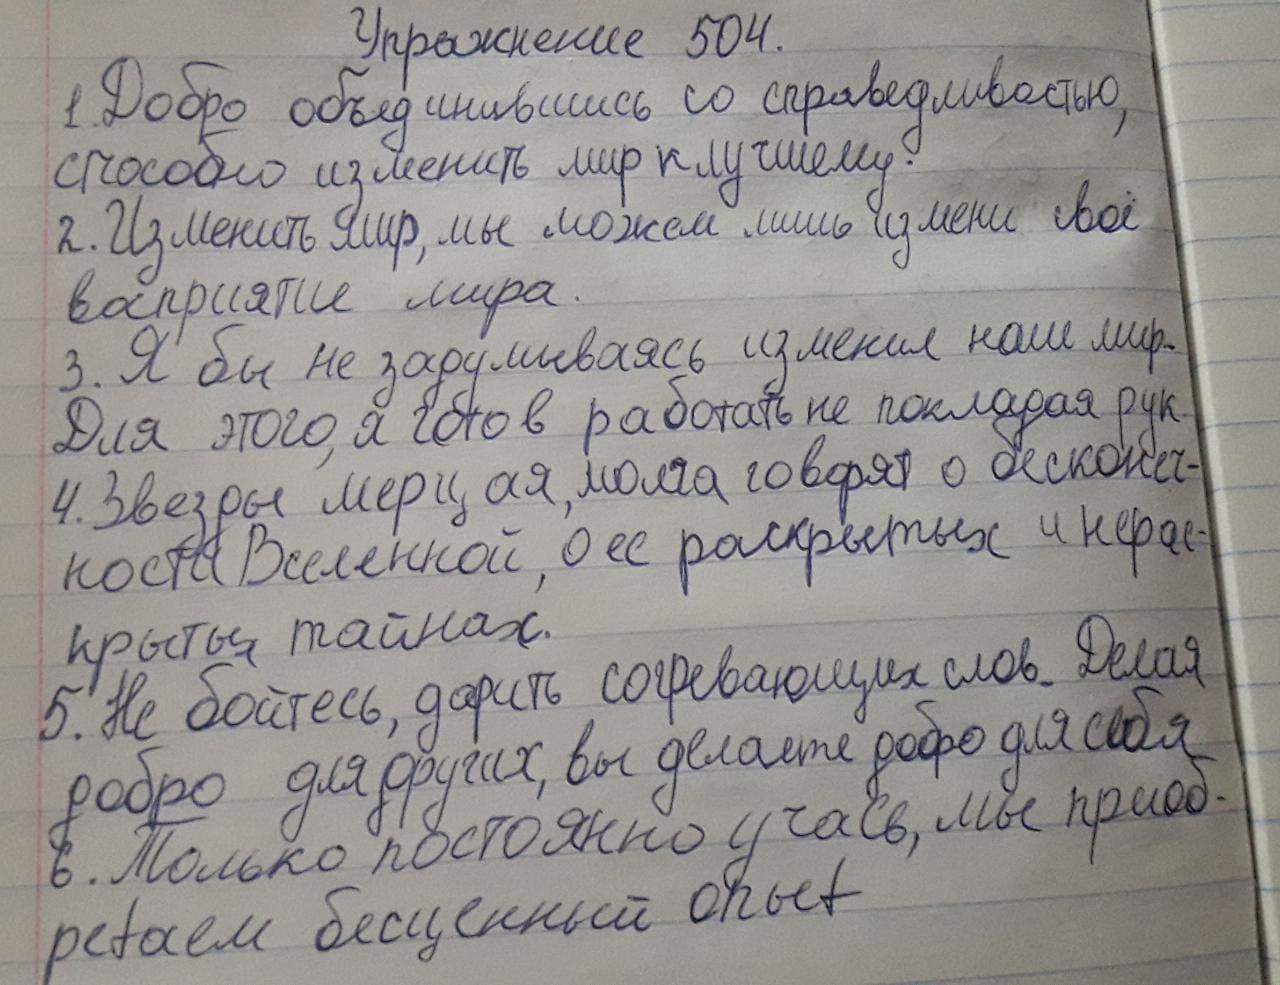 Упражнение 504.
1. Добро объединившись со справедливостью,
способно изменить мир к лучшему.
2. Изменить мир, мы можем лишь измени своё
восприятие мира.
3. Я бы не задумываясь изменил наш мир.
Для этого, я готов работать не покладая рук
4. Звезды мерцая, молча говорят о бесконеч-
ности Вселенной, о ее раскрытых и нерас-
крытых тайнах.
5. Не бойтесь, дарить согревающих слов. Делая
добро для других, вы делаете добро для себя
6. Только постоянно учась, мы приоб-
ретаем бесценный опыт